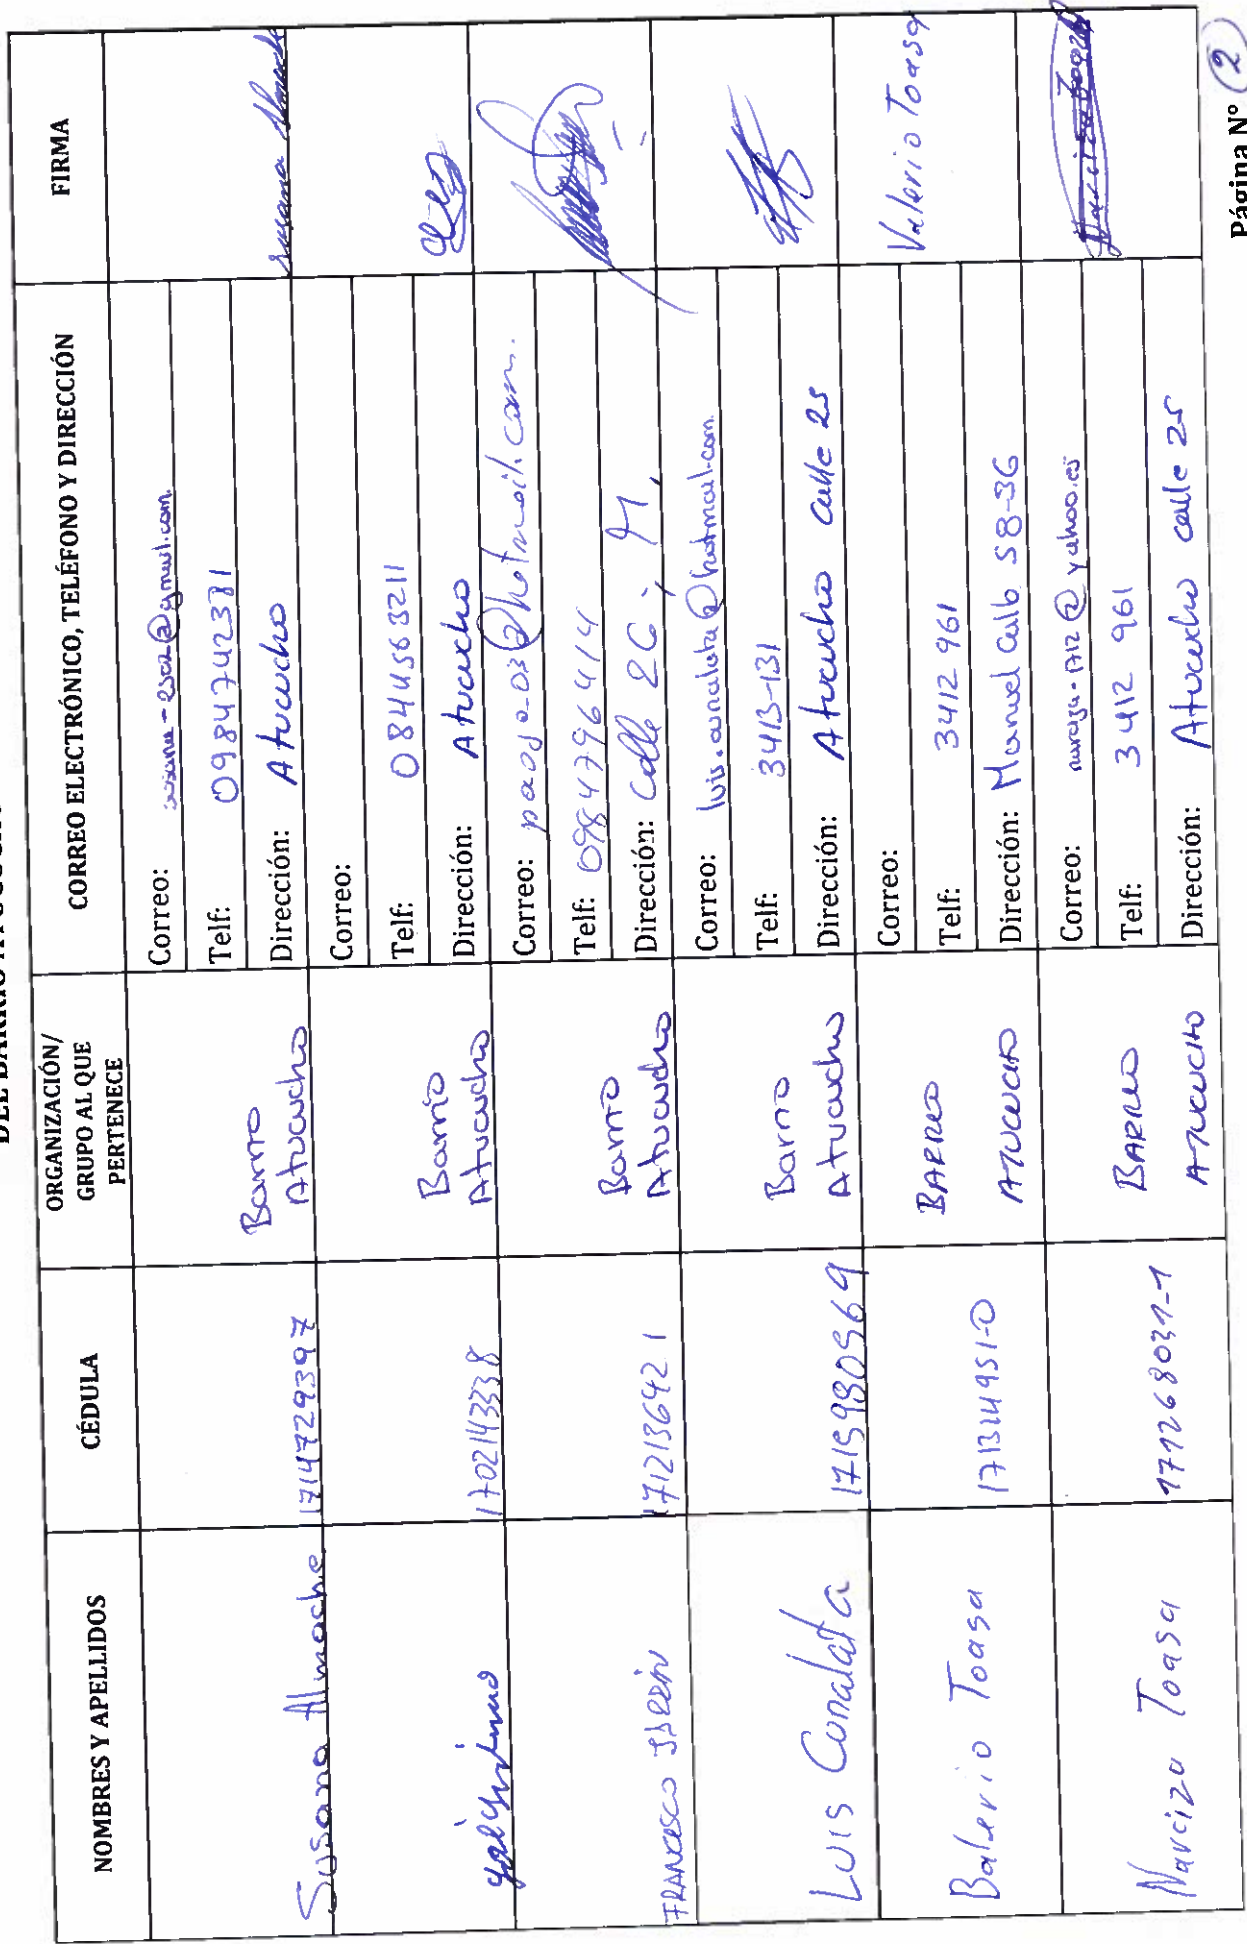 DEL BARRIO ATUCUCHO
NOMBRES Y APELLIDOS
CÉDULA
ORGANIZACIÓN/
GRUPO AL QUE
PERTENECE
CORREO ELECTRÓNICO, TELÉFONO Y DIRECCIÓN
FIRMA
Susana Almache
1714729397
Barrio
Atucucho
Correo:
Telf: 0984742381
Dirección: Atucucho
Susana Almache
1702143338
Barrio
Atucucho
Correo:
Telf: 0844563211
Dirección: Atucucho
FRANCISCO
171213642 1
Barrio
Atucucho
Correo:
Telf: 0984796414
Dirección: Calle 26,
LUIS Conalata
1715980569
Barrio
Atucucho
Correo:
Telf: 3413-131
Dirección: Atucucho calle 25
Balerio Toasa
171314951-0
BARRIO
ATUCUCHO
Correo:
Telf: 3412 961
Dirección: Manuel Calb S8-36
Valerio Toasa
Narciza Toasa
171268031-1
BARRIO
ATUCUCHO
Correo:
Telf: 3 412 961
Dirección: Atucucho calle 25
Narciza Toasa
Página N° 2